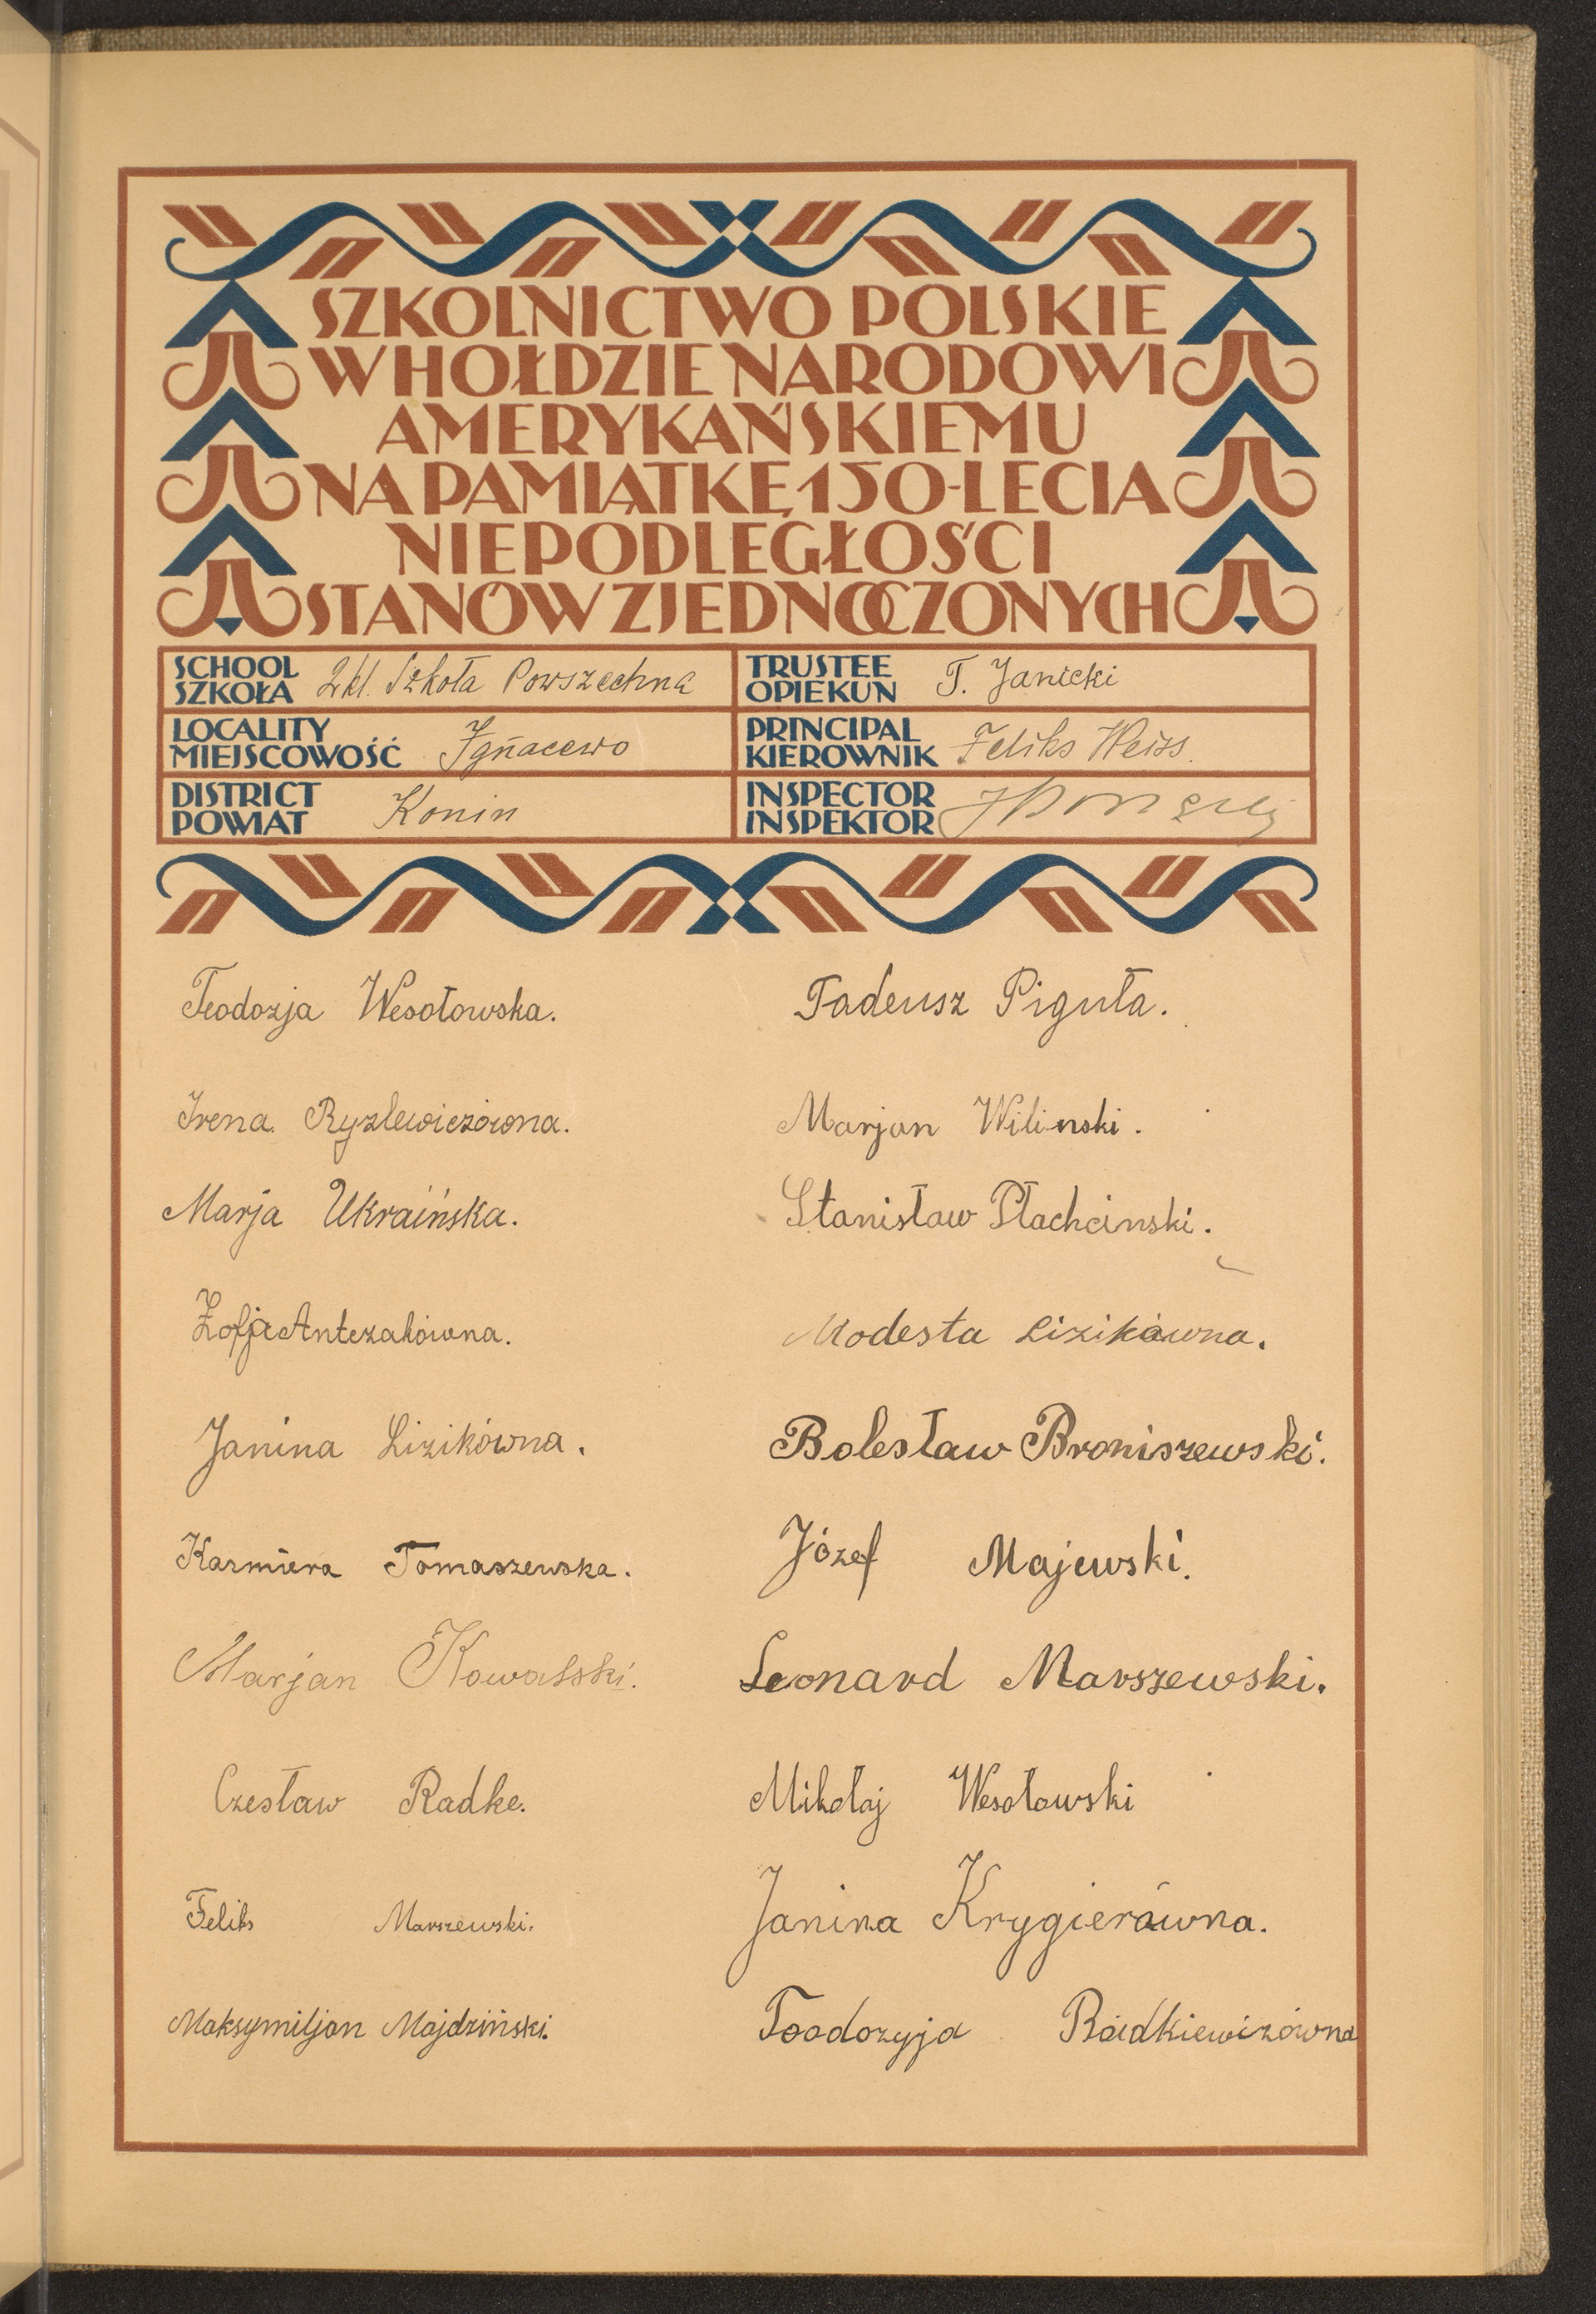 SZKOLNICTWO POLSKIE
W HOŁDZIE NARODOWI
AMERYKAŃSKIEMU
NA PAMIĄTKĘ 150-LECIA
NIEPODLEGŁOŚCI
STANÓW ZJEDNOCZONYCH
SCHOOL
SZKOŁA 2 kl. Szkoła Powszechna
TRUSTEE
OPIEKUN T. Janicki
LOCALITY
MIEJSCOWOŚĆ Ignacewo
PRINCIPAL
KIEROWNIK Feliks Weiss.
DISTRICT
POWIAT Konin
INSPECTOR
INSPEKTOR
Teodozja Wesołowska.
Irena Ryzlewiczówna.
Marja Ukraińska.
Zofja Antczakówna.
Janina Lizikówna.
Kazmiera Tomaszewska.
Marjan Kowalski.
Czesław Radke.
Feliks Marszewski.
Maksymiljan Majdziński.
Tadeusz Piguła.
Marjan Wilinski.
Stanisław Płachcinski.
Modesta Lizikówna.
Bolesław Broniszewski.
Józef Majewski.
Leonard Marszewski.
Mikołaj Wesołowski
Janina Krygierówna.
Toodozyja Radkiewizówna